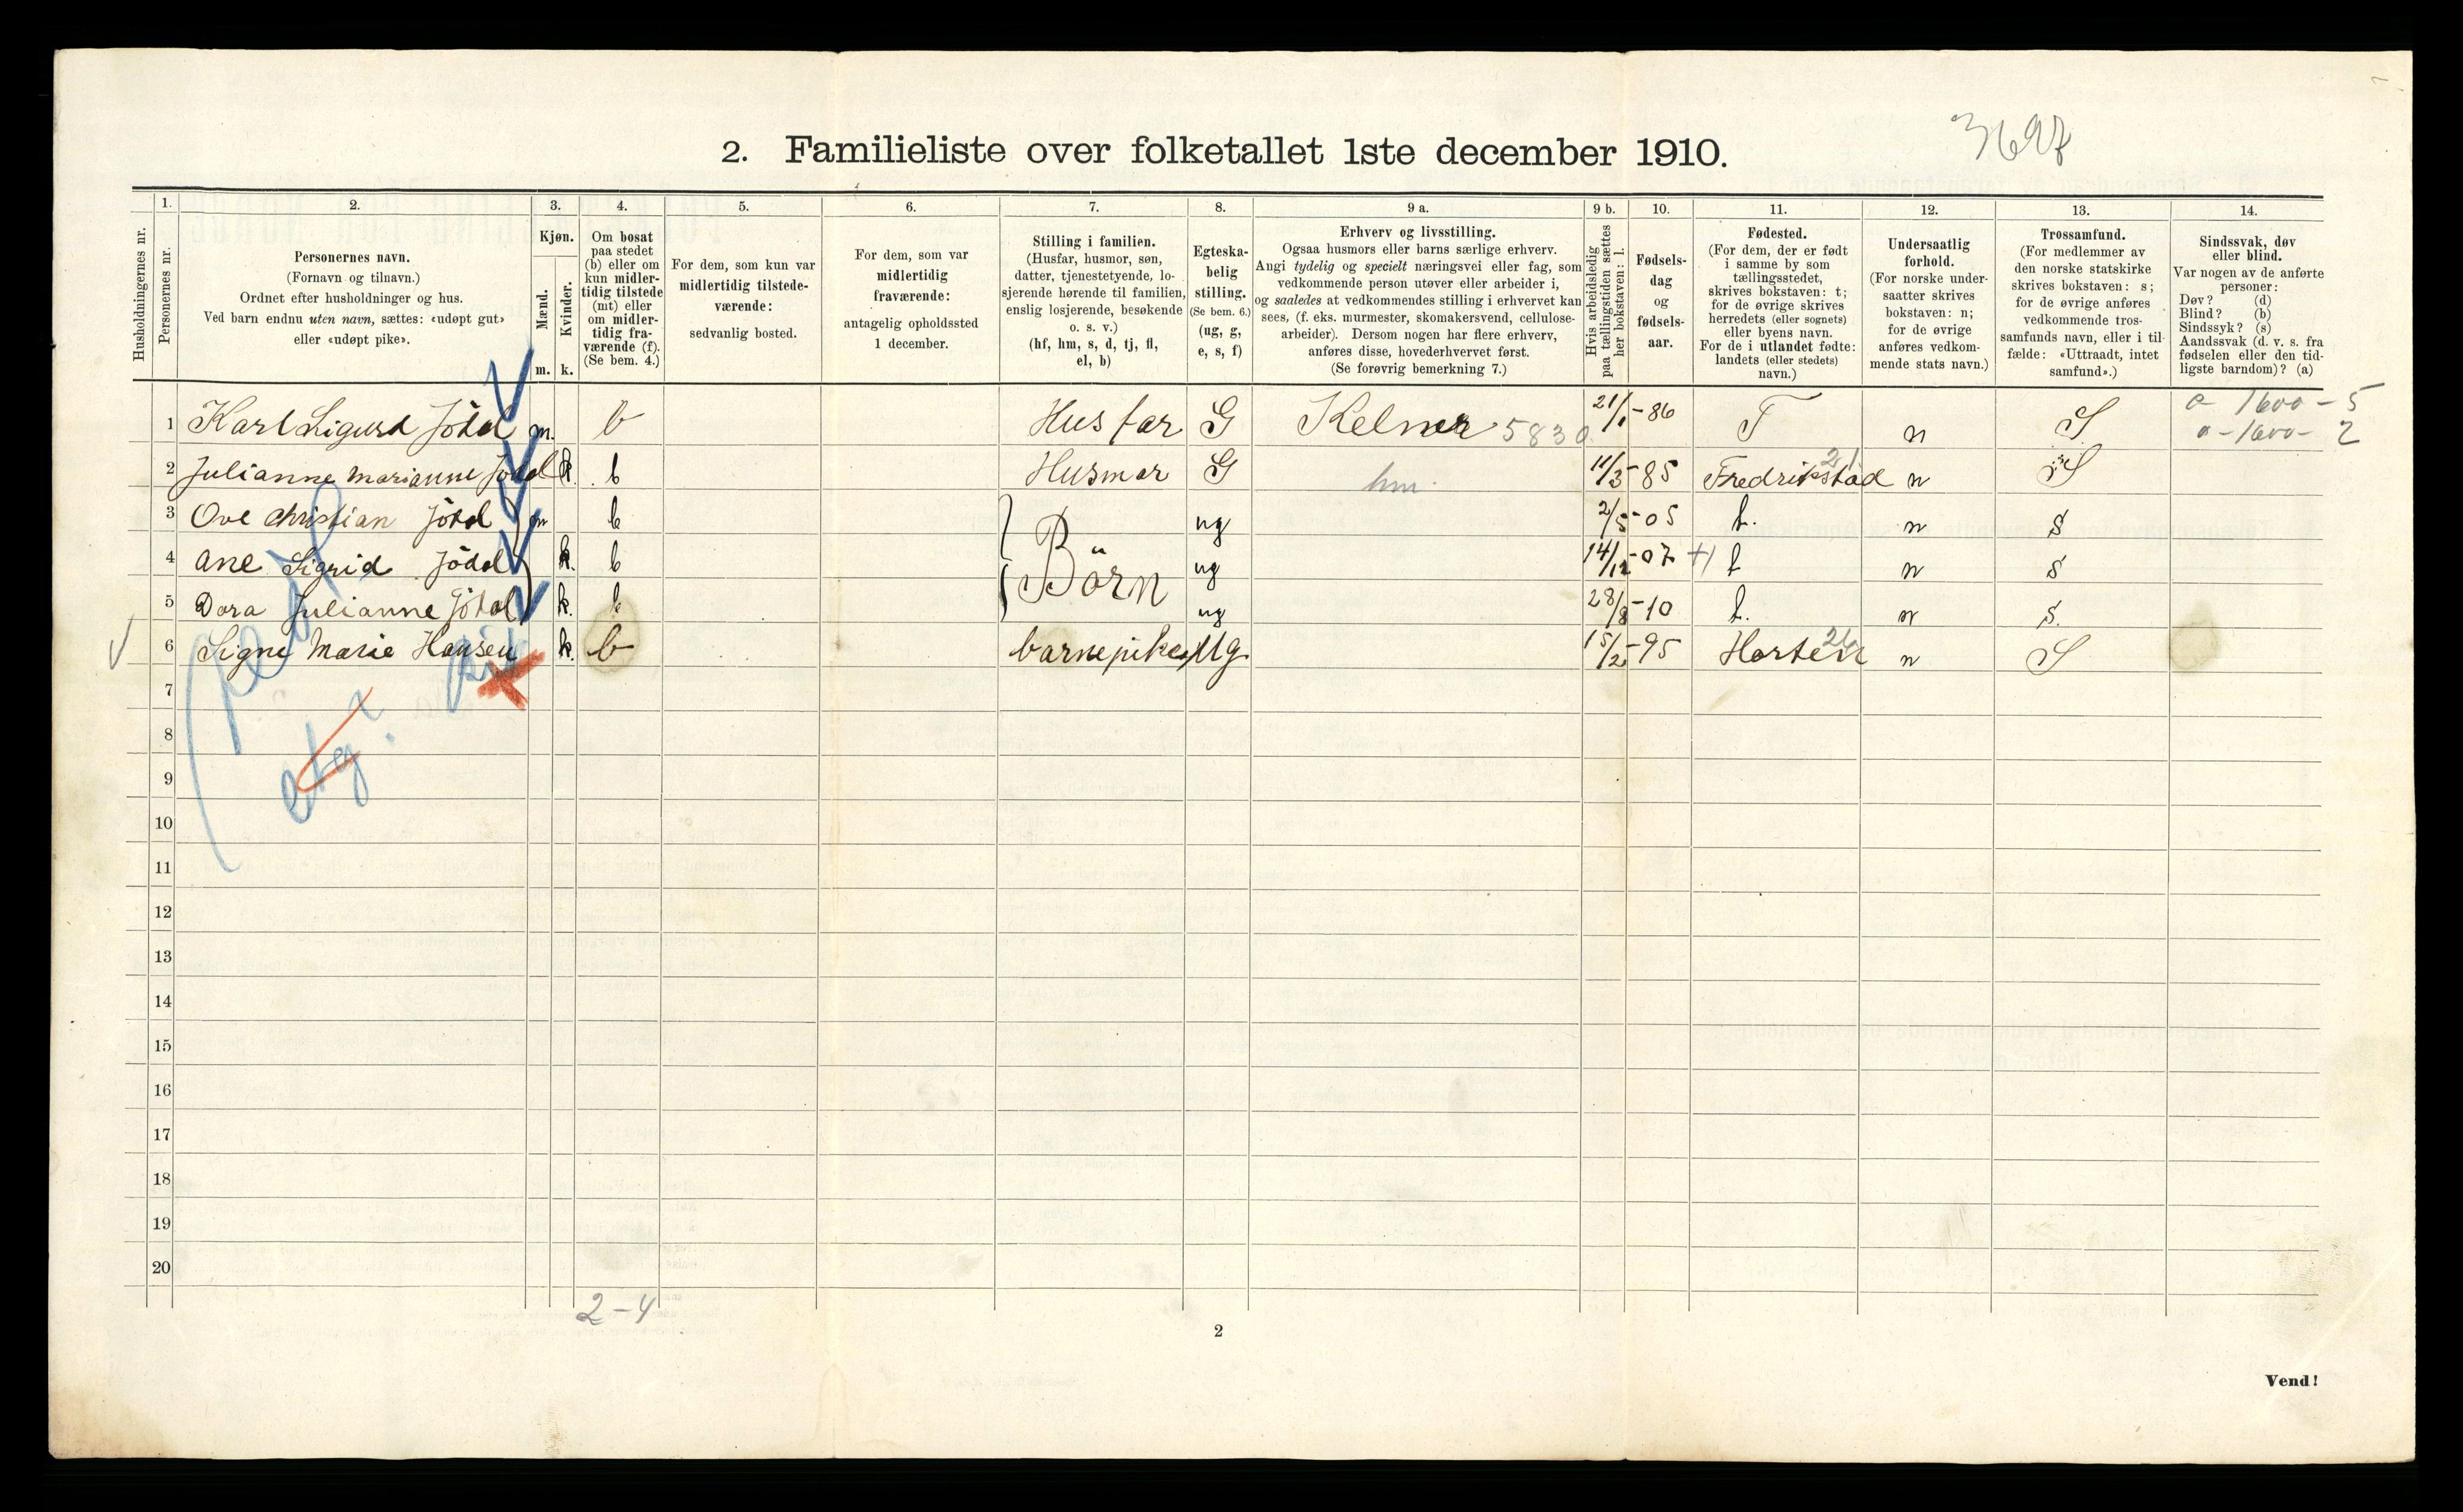 3697
2. Familieliste over folketallet 1ste december 1910.
Husholdningernes nr.
1.
Personernes nr.
2.
Personernes navn.
(Fornavn og tilnavn.)
Ordnet efter husholdninger og hus.
Ved barn endnu uten navn, sættes: «udøpt gut»
eller «udøpt pike».
3.
Kjøn.
Mænd.
Kvinder.
m.
k.
4.
Om bosat
paa stedet
(b) eller om
kun midler-
tidig tilstede
(mt) eller
om midler-
tidig fra-
værende (f).
(Se bem. 4.)
5.
For dem, som kun var
midlertidig tilstede-
værende:
sedvanlig bosted.
6.
For dem, som var
midlertidig
fraværende:
antagelig opholdssted
1 december.
7.
Stilling i familien.
(Husfar, husmor, søn,
datter, tjenestetyende, lo-
sjerende hørende til familien,
enslig losjerende, besøkende
o. s. v.)
(hf, hm, s, d, tj, fl,
el, b)
8.
Egteska-
belig
stilling.
(Se bem. 6.)
(ug, g,
e, s, f)
9 a.
Erhverv og livsstilling.
Ogsaa husmors eller barns særlige erhverv.
Angi tydelig og specielt næringsvei eller fag, som
vedkommende person utøver eller arbeider i,
og saaledes at vedkommendes stilling i erhvervet kan
sees, (f. eks. murmester, skomakersvend, cellulose-
arbeider). Dersom nogen har flere erhverv,
anføres disse, hovederhvervet først.
(Se forøvrig bemerkning 7.)
9 b.
Hvis arbeidsledig
paa tællingstiden sættes
her bokstaven: l.
10.
Fødsels-
dag
og
fødsels-
aar.
11.
Fødested.
(For dem, der er født
i samme by som
tællingsstedet,
skrives bokstaven: t;
for de øvrige skrives
herredets (eller sognets)
eller byens navn.
For de i utlandet fødte:
landets (eller stedets)
navn.)
12.
Undersaatlig
forhold.
(For norske under-
saatter skrives
bokstaven: n;
for de øvrige
anføres vedkom-
mende stats navn.)
13.
Trossamfund.
(For medlemmer av
den norske statskirke
skrives bokstaven: s;
for de øvrige anføres
vedkommende tros-
samfunds navn, eller i til-
fælde: «Uttraadt, intet
samfund».)
14.
Sindssvak, døv
eller blind.
Var nogen av de anførte
personer:
Døv? (d)
Blind? (b)
Sindssyk? (s)
Aandssvak (d. v. s. fra
fødselen eller den tid-
ligste barndom)? (a)
1 Karl Sigurd Jödal m. b Husfar G Kelner 5830 21/1-86 T n S a - 1600 - 5
a - 1600 - 2
2 Julianne Marianne Jödal k. b Husmor G hm. 11/3-85 Fredrikstad 21 n S
3 Ove Christian Jödal m b Börn ug 2/5-05 t. n s
4 Ane Sigrid Jödal k. b ug 14/12-07 t n s
5 Dora Julianne Jödal k. b ug 28/8-10 t. n s.
6 Signe Marie Hansen k. b barnepike Ug 15/2-95 Horten 26 n S
7
8
9
10
11
12
13
14
15
16
17
18
19
20
2-4
2
Vend!